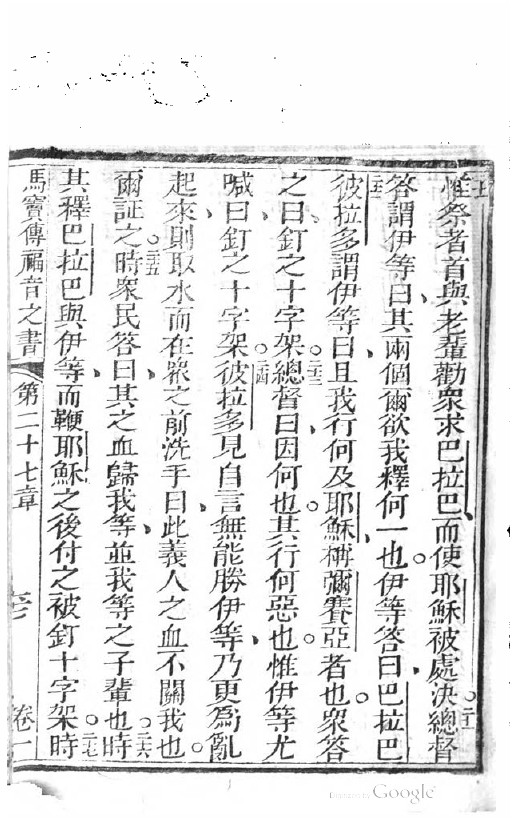 惟祭者首與老輩勸衆求巴拉巴而使耶穌被處決。二十一總督
答謂伊等曰、其兩個爾欲我釋何一也。伊等答曰、巴拉巴
彼拉多謂伊等曰、且我行何及耶穌、稱彌賽亞者也。衆答
之曰、釘之十字架。二十三總督曰、因何也。其行何惡也。惟伊等尤
喊曰、釘之十字架。二十四彼拉多見自言無能勝伊等、乃更爲亂
起來、則取水而在衆之前洗手曰、此義人之血不關我也。
爾証之。二十五時衆民答曰、其之血歸我等、並我等之子輩也。二十六時
其釋巴拉巴與伊等、而鞭耶穌之後付之被釘十字架。二十七時
馬竇傳福音之書 第二十七章 卷一
Google